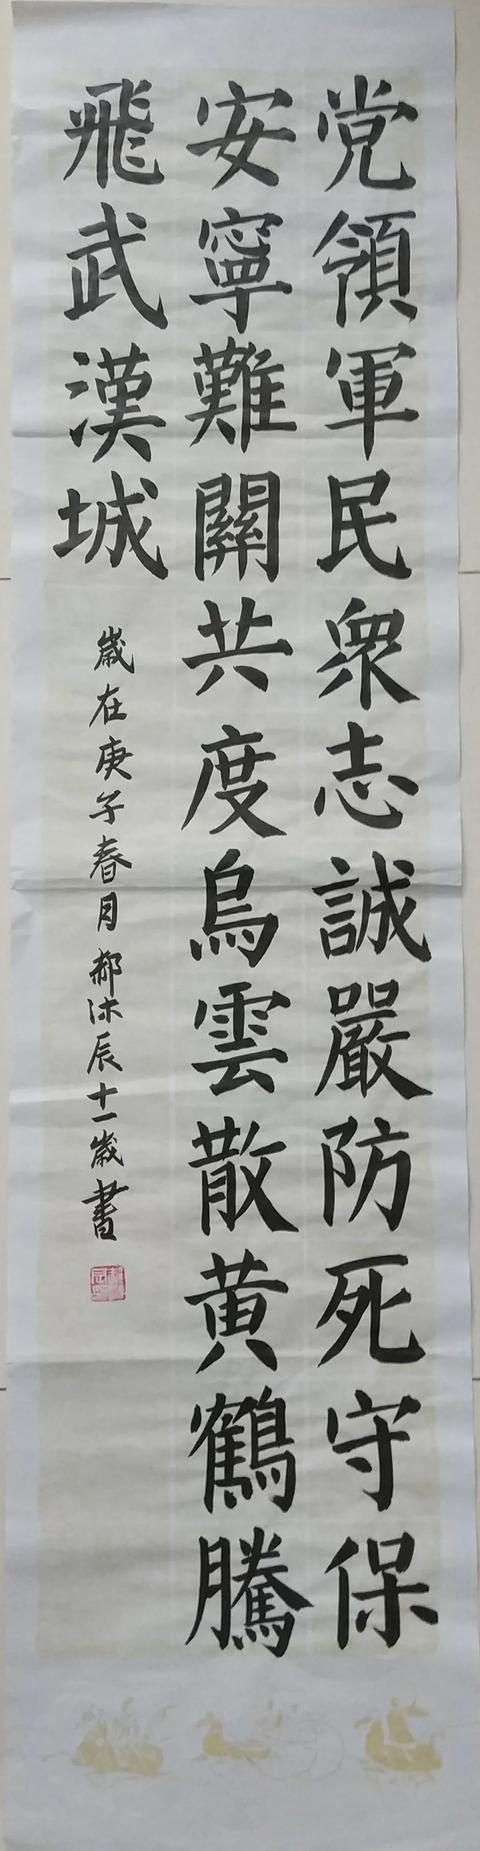 党領軍民衆志誠嚴防死守保
安寧難關共度烏雲散黄鶴騰
飛武漢城
歲在庚子春月郝沐辰十一歲書